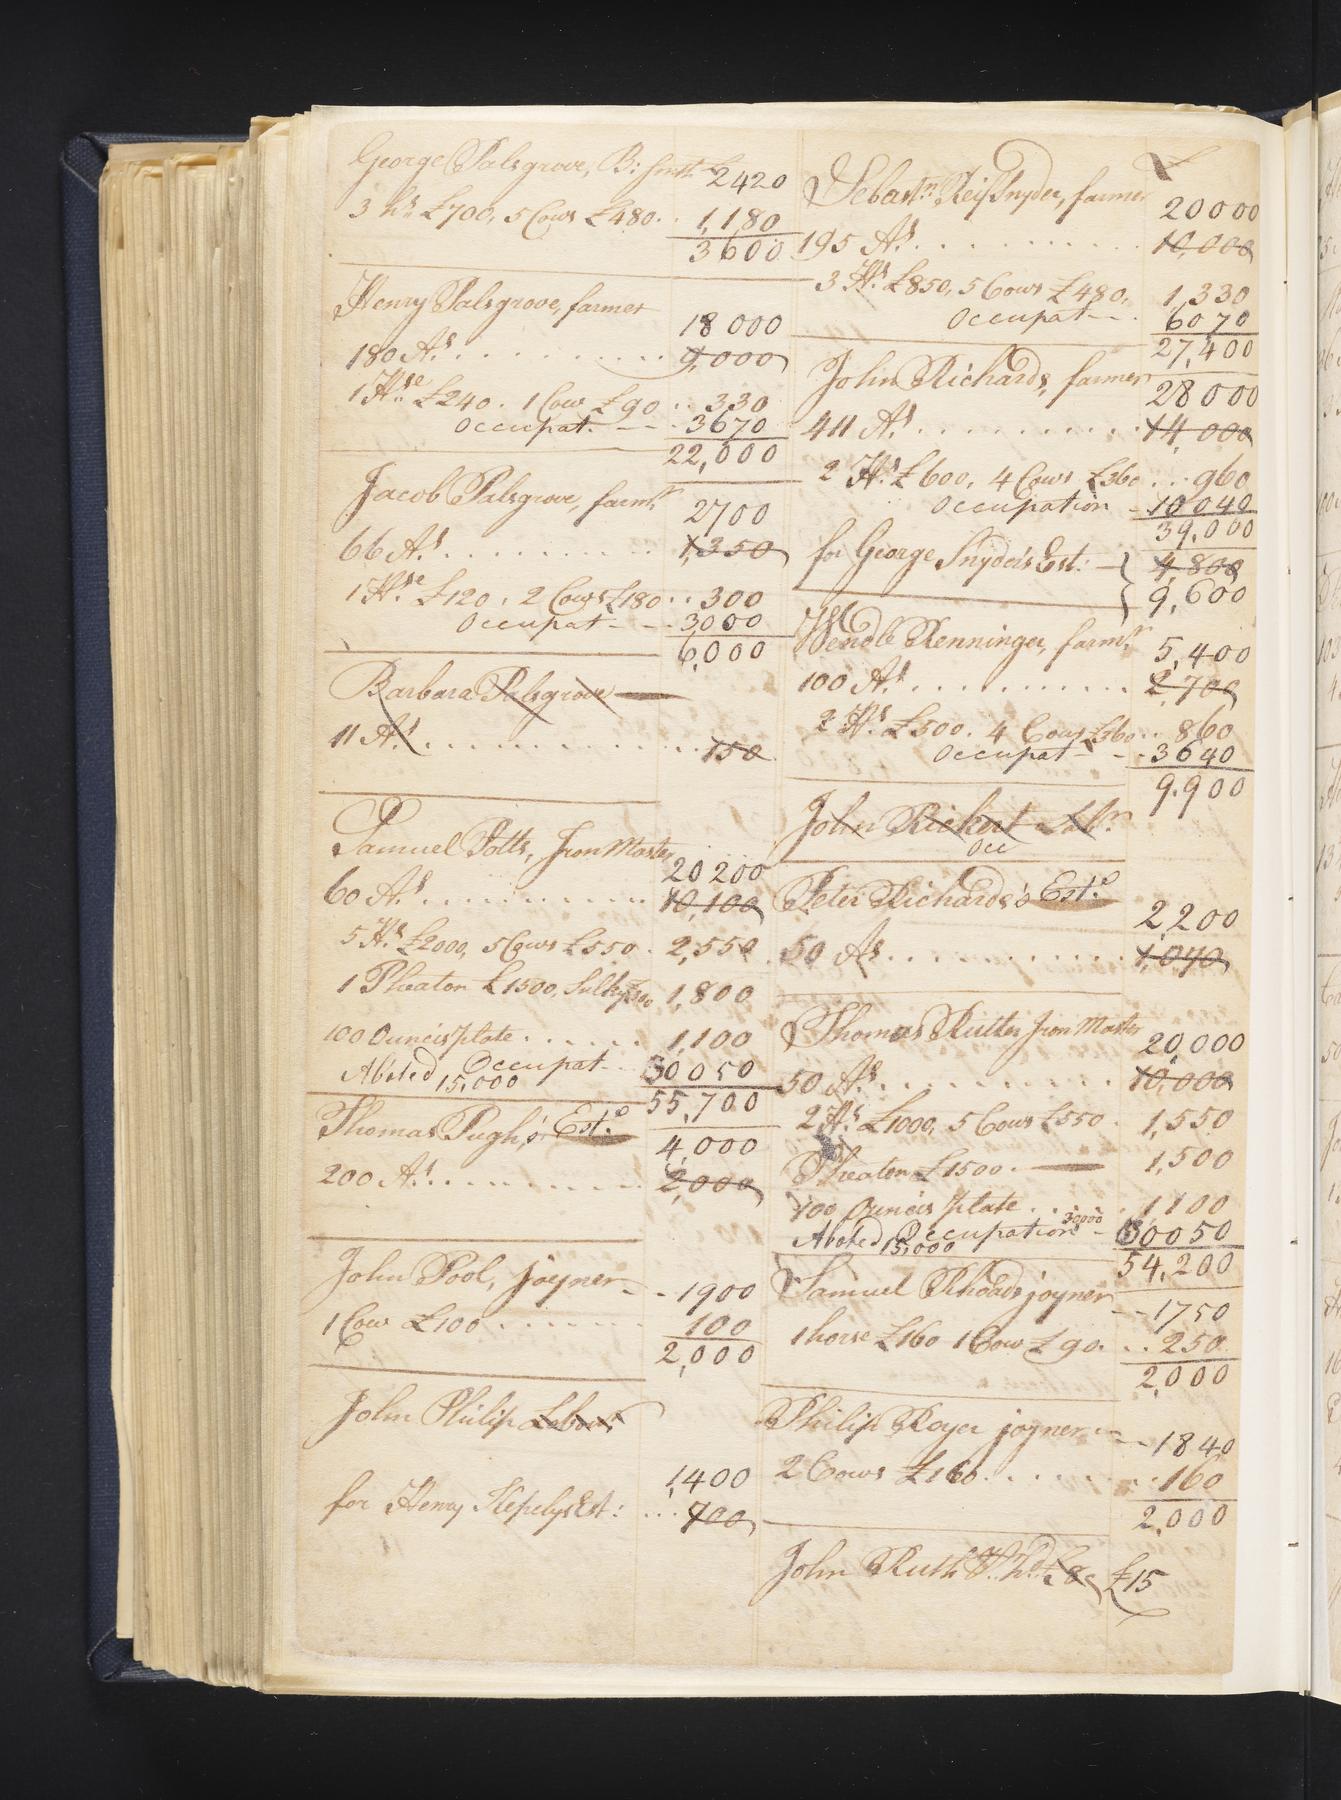 George Palsgrove, B: Smith 2420
3 hs £700, 5 Cows £480 .. 1,180
3600
Henry Palsgrove, farmer
18000
180 As. . . . . . . . . . 9,000
1 Hse £240. 1 Cow £90 .. 330
Occupat. - - 3670
22,000
Jacob Palsgrove, farmr
2700
66 As. . . . . . . . . 1,350
1 Hse £120. 2 Cows £180 .. 300
Occupat - - 3000
6,000
Barbara Palsgrove
11 As. . . . . . . . . . 150
Samuel Potts, Iron Master
20200
60 As. . . . . . . . . 10,100
5 Hs £2000, 5 Cows £550 . 2,550
1 Pheaton £1500, Sulky £300 1,800
100 Ounces plate . . . . . . 1,100
Abated Occupat - 30050
15,000
55,700
Thomas Pugh's Este
4,000
200 As. . . . . . . . . 2,000
John Pool, joyner - - 1900
1 Cow £100 . . . . . . . 100
2,000
John Philip Labour
1,400
for Henry Kepelys Est: . . . 700
£
Sebastn Reifsnyder, farmer
20000
195 As. . . . . . . . . . 10,000
3 Hs £850, 5 Cows £480, 1,330
Occupat - - . 6070
27,400
John Richards, farmer
28000
411 As. . . . . . . . . 14,000
2 Hs £600, 4 Cows £360 . . . 960
Occupation - 10040
39,000
for George Snyder's Est: - } 4,800
9,600
Wendle Renninger, farmr
5,400
100 As. . . . . . . . . . 2,700
2 Hs £500. 4 Cows £360 .. 860
Occupat - - 3640
9.900
John Rickert Labr
Occ
Peter Richards's Este
2,200
50 As. . . . . . . . . . 1,040
Thomas Rutter Iron Master
20,000
50 As. . . . . . . . . . 10,000
2 Hs £1000, 5 Cows £550 . 1,550
Pheaton £1500 . 1,500
100 Ounces plate . . . . 1100
30000
Abated Occupation - 30050
15,000
54,200
Samuel Rhoads joyner
- - 1750
1 horse £160 1 Cow £90. . . 250
2,000
Philip Royer joyner - - 1840
2 Cows £160 . . . . . . . 160
2,000
John Ruth £8 £15